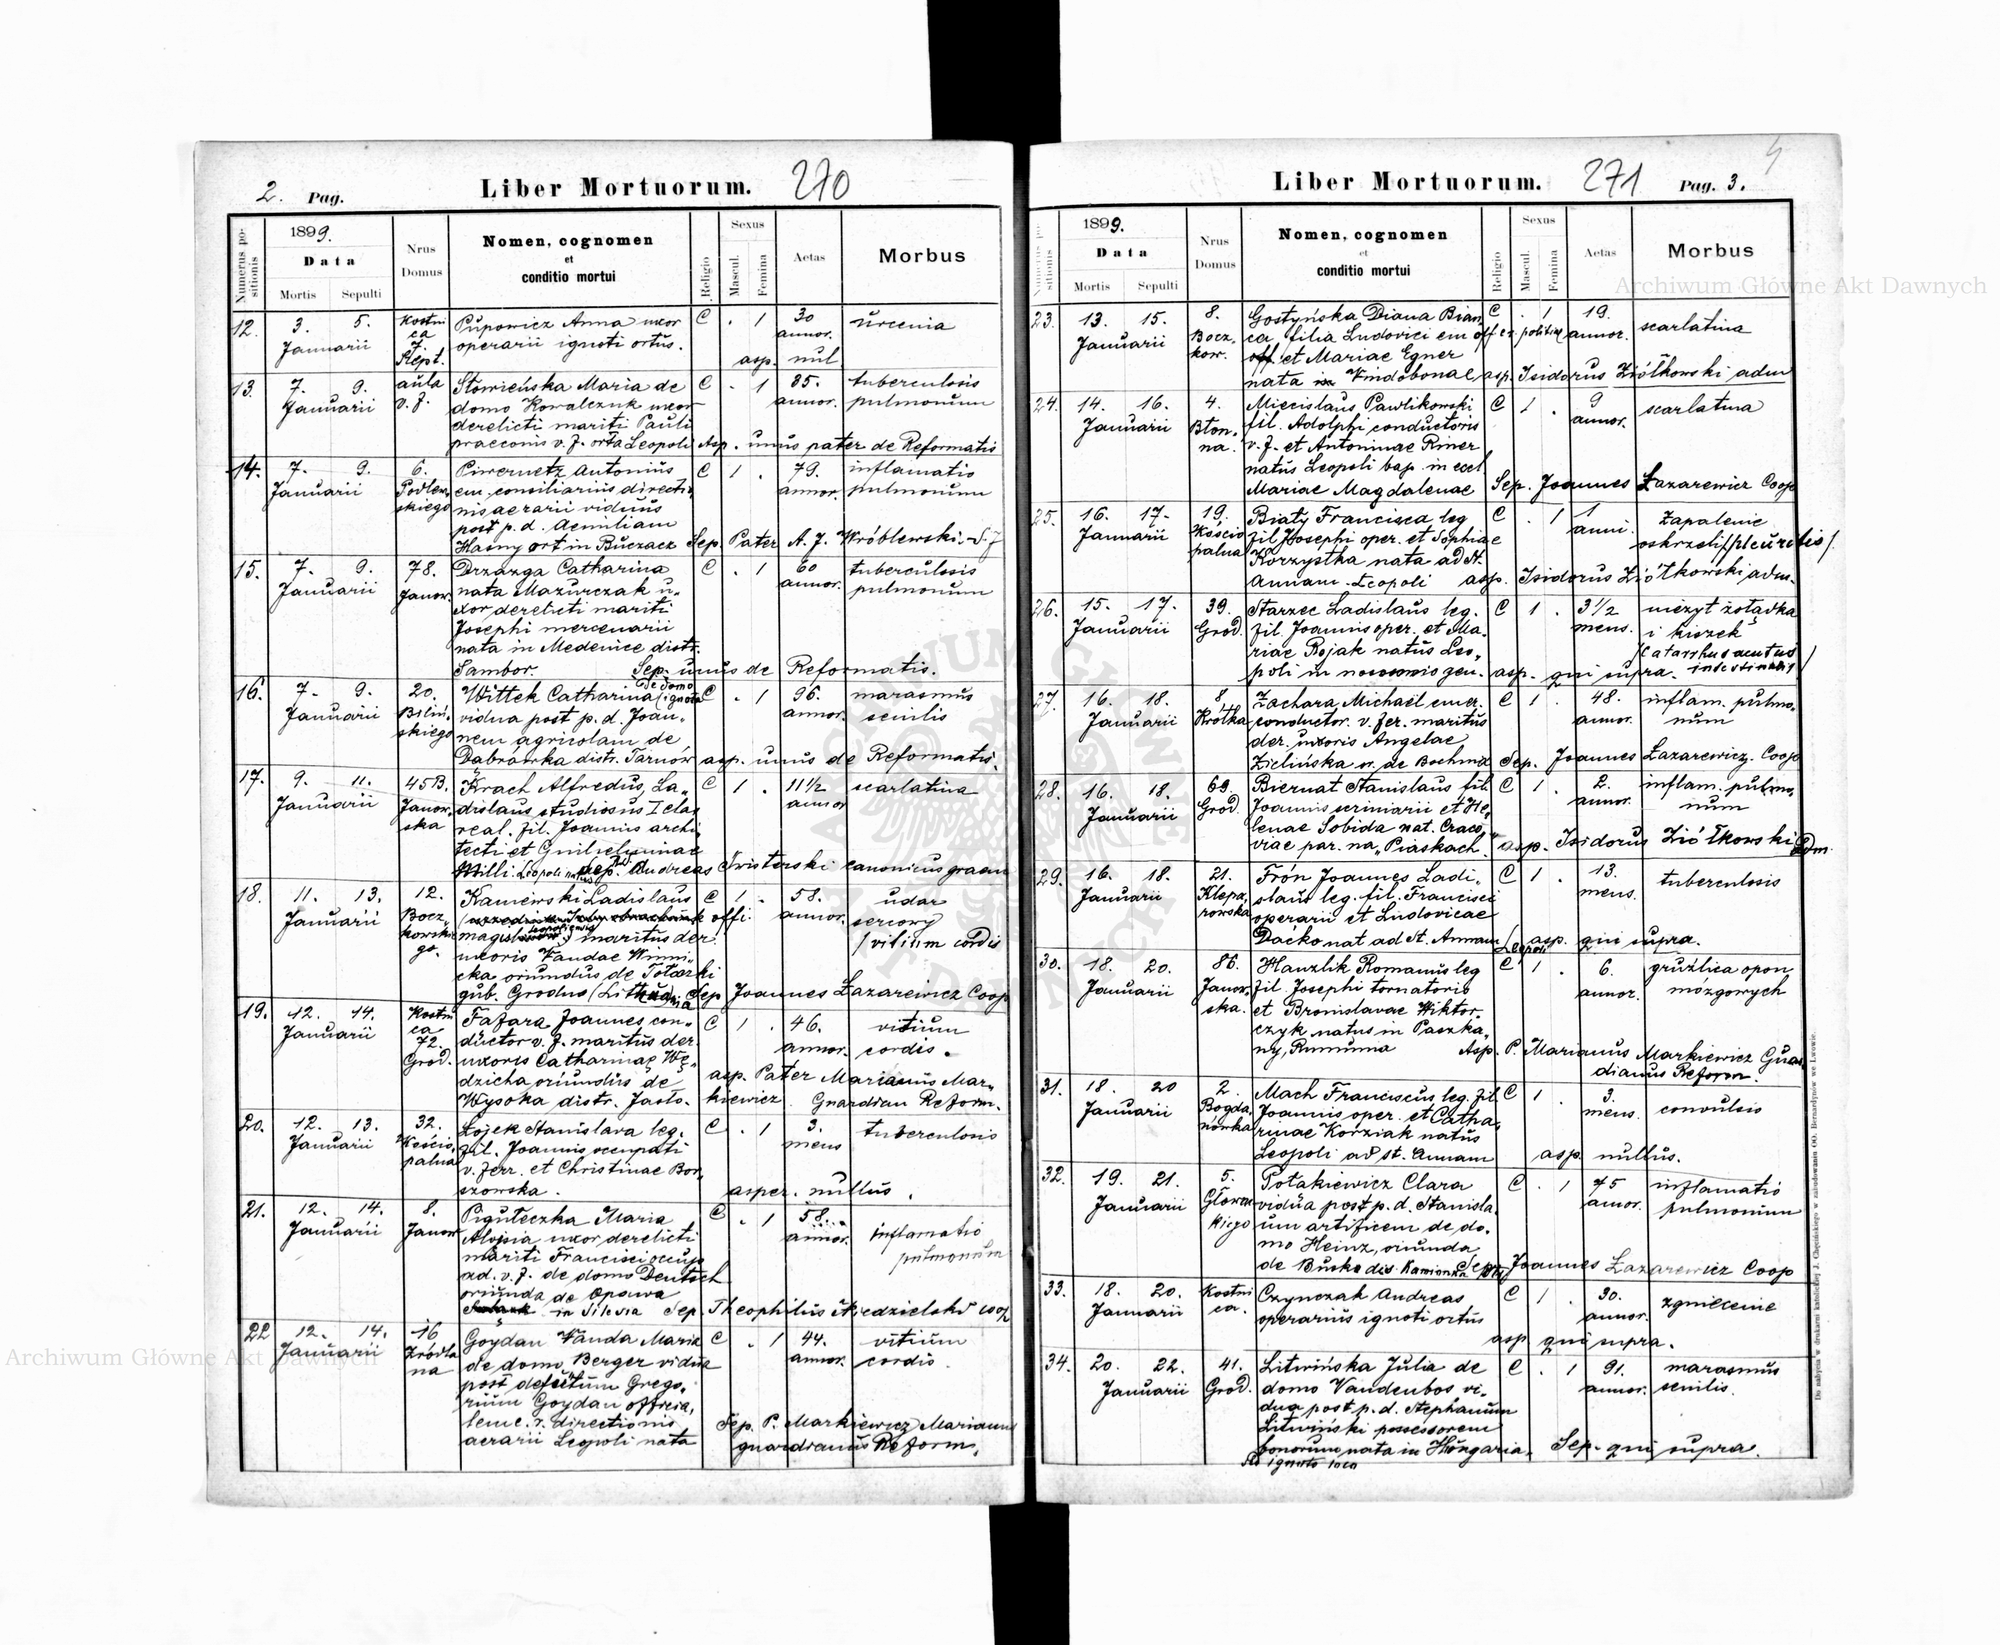 2. Pag. Liber Mortuorum. 270
Numerus positionis
1899.
Data
Mortis Sepulti
Nrus Domus
Nomen, cognomen
et
conditio mortui
Religio
Sexus
Mascul. Femina
Aetas
Morbus
12. 3. 5. Kostni Pupowicz Anna uxor C . 1 30 urcenia
Januarii ca operarii ignoti ortus. annor.
7. Słept. asp. nul
13. 7. 9. aula Słowieńska Maria de C . 1 35. tuberculosis
Januarii v. f. domo Kowalczuk uxor annor. pulmonum
derelicti mariti Pauli
praeconis v. f. orta Leopoli Asp. unus pater de Reformatis
14. 7. 9. 6. Piwernetz Antonius C 1 . 79. inflamatio
Januarii Podlew em. consiliarius directi annor. pulmonum
skiego nis aerarii viduus
post p. d. Aemiliam
Hasny ort in Buczacz Sep. Pater A. J. Wróblewski S. J
15. 7. 9. 78. Drzazga Catharina C . 1 60 tuberculosis
Januarii Janow. nata Mazurczak u- annor. pulmonum
xor derelicti mariti
Josephi mercenarii
nata in Medenice distr.
Sambor. Sep. unus de Reformatis.
16. 7. 9. 20. Wittek Catharina (de domo ignota C . 1 96. marasmus
Januarii Biliń- vidua post p. d. Joan- annor. senilis
skiego nem agricolam de
Dąbrówka distr. Tarnów asp. unus de Reformatis.
17. 9. 11. 45B. Krach Alfredus, La- C 1 . 11 1/2 scarlatina
Januarii Janow- dislaus studiosus I clas annor
ska real. fil. Joannis archi
tecti et Guilielminae
Milli. Leopoli natus Sep. Andreas Tristerski canonicus
18. 11. 13. 12. Kamiewski Ladislaus C 1 . 58. udar
Januarii Bocz- offi. annor. sercowy
kowskie magist maritus der. /vitium cordis
go. uxoris Vandae Winni-
cka oriundus de
gub. Grodno (Lithuania Sep Joannes Łazarewicz Coop
19. 12. 14. Kostni Fafara Joannes con- C 1 . 46. vitium
Januarii ca ductor v. f. maritus der. annor. cordis.
72. uxoris Catharinae Wę
Grod. dzicha oriundus de asp. Pater Marianus Mar-
Wysoka distr. Jasło. kiewicz Guardian Reform.
20. 12. 13. 32. Łojek Stanislava leg. C . 1 3. tuberculosis
Januarii Kościo fil. Joannis occupati mens
palna v. ferr. et Christinae Bor
szowska. asper. nullus.
21. 12. 14. 8. Piguteczka Maria C . 1 58. inflamatio
Januarii Janow Aloisia uxor derelicti annor. pulmonum
mariti Francisci occup
ad. v. f. de domo Deutsch
oriunda de Opawa
in Silesia Sep. Theophilus Niedzielski coop
22 12. 14. 16 Goydan Vanda Maria C . 1 44. vitium
Januarii Źródla de domo Berger vidua annor. cordis.
na post defuctum Grego-
rium Goydan officia-
lem c. r. directionis Sep. P. Markiewicz Marianus
aerarii Leopoli nata guardianus Reform.
Liber Mortuorum. 271 Pag. 3. 4
1899.
Data
Mortis Sepulti
Nrus Domus
Nomen, cognomen
et
conditio mortui
Religio
Sexus
Mascul. Femina
Aetas
Morbus
23. 13. 15. 8. Gostyńska Diana Bian C . 1 19. scarlatina
Januarii Bocz- ca filia Ludovici em off c. r. politiae annor.
kow. off et Mariae Egner
nata in Vindobonae asp. Isidorus Ziółkowski adm
24. 14. 16. 4. Miecislaus Pawlikowski C 1 . 9 scarlatina
Januarii Błon- fil. Adolphi conductoris annor.
na. v. f. et Antoninae Riner
natus Leopoli bap. in eccl
Mariae Magdalenae Sep. Joannes Łazarewicz Coop
25. 16. 17. 19. Biały Francisca leg C . 1 1 Zapalenie
Januarii Kościo fil Josephi oper. et Sophiae anni. oskrzeli /pleuritis/.
palna Korzystka nata ad St.
Annam Leopoli asp. Isidorus Ziółkowski adm.
26. 15. 17. 39. Starzec Ladislaus leg. C 1 . 3 1/2 nieżyt żołądka
Januarii Grod. fil. Joannis oper. et Ma- mens. i kiszek
riae Rojak natus Leo- /Catarrhus acutus
poli in nosocomio gen. asp. qui supra. intestinalis/
27. 16. 18. 8 Zachara Michael emer. C 1 . 48. inflam. pulmo-
Januarii Krótka conductor. v. fer. maritus annor. num
der. uxoris Angelae
Zielińska or. de Bochnia Sep. Joannes Łazarewicz. Coop
28. 16. 18. 69. Biernat Stanislaus fil. C 1 . 2. inflam. pulmo,
Januarii Grod. Joannis scriniarii et He- annor. num
lenae Sobida nat. Craco-
viae par. na „Piaskach. asp. Isidorus Ziółkowski Adm.
29. 16. 18. 21. Frón Joannes Ladi- C 1 . 13. tuberculosis
Januarii Klepa, slaus leg. fil. Francisci mens.
rowska operarii et Ludovicae
Dacko nat ad St. Annam Leopoli asp. qui supra.
30. 18. 20. 86. Hanzlik Romanus leg C 1 . 6. gruźlica opon
Januarii Janow- fil. Josephi tornatoris annor. mózgowych
ska. et Bronislavae Wiktor-
czyk natus in Paszka-
ny, Rumunia Asp. P. Marianus Markiewicz Guar
dianus Reform.
31. 18. 20 2. Mach Franciscus leg. fil C 1 . 3. convulsio
Januarii Bogda- Joannis oper. et Catha- mens.
nówka rinae Korziak natus
Leopoli ad St. Annam asp. nullus.
32. 19. 21. 5. Potakiewicz Clara C . 1 75 inflamatio
Januarii Głowac vidua post p. d. Stanisla- annor. pulmonum
kiego um artificem de do-
mo Heinz, oriunda
de Busko dis. Kamionka Sep. Joannes Łazarewicz Coop
33. 18. 20. Kostni Czynczak Andreas C 1 . 30. zgniecenie
Januarii ca. operarius ignoti ortus annor.
asp qui supra.
34. 20. 22. 41. Litwińska Julia de C . 1 91. marasmus
Januarii Grod. domo Vandenbos vi- annor. senilis.
dua post p. d. Stephanum
Litwiński possessorem
bonorum nata in Hungaria. Sep. qui supra.
ignoto loco
Do nabycia w drukarni katolickiej J. Chęcińskiego w zabudowaniu OO. Bernardynów we Lwowie.
Archiwum Główne Akt Dawnych
Archiwum Główne Akt Dawnych